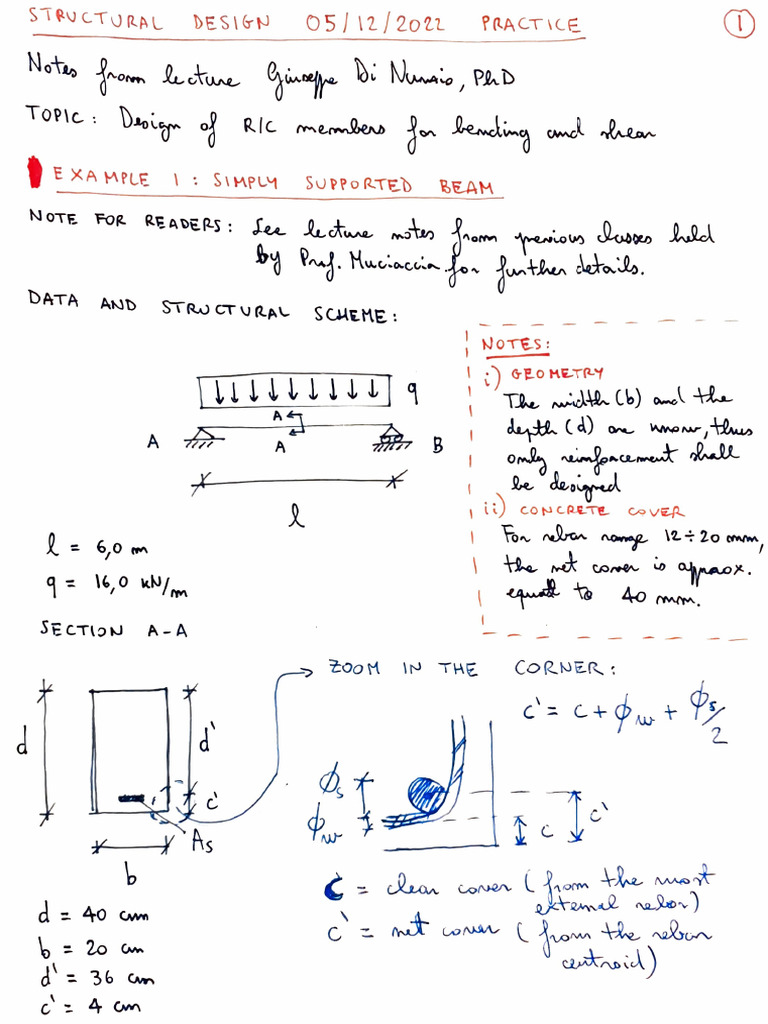 STRUCTURAL DESIGN 05/12/2022 PRACTICE
1
Notes from lecture Giuseppe Di Nunzio, PhD
TOPIC: Design of R/C members for bending and shear
EXAMPLE 1: SIMPLY SUPPORTED BEAM
NOTE FOR READERS: See lecture notes from previous classes held
by Prof. Muciaccia for further details.
DATA AND STRUCTURAL SCHEME:
q
A
A
B
A
l
l = 6,0 m
q = 16,0 kN/m
NOTES:
i) GEOMETRY
The width (b) and the
depth (d) are known, thus
only reinforcement shall
be designed
ii) CONCRETE COVER
For rebar range 12÷20 mm,
the net cover is approx.
equal to 40 mm.
SECTION A-A
d
d'
c'
As
b
d = 40 cm
b = 20 cm
d' = 36 cm
c' = 4 cm
ZOOM IN THE CORNER:
c' = c + ϕw + ϕs/2
ϕs
ϕw
c
c'
c = clear cover (from the most
external rebar)
c' = net cover (from the rebar
centroid)